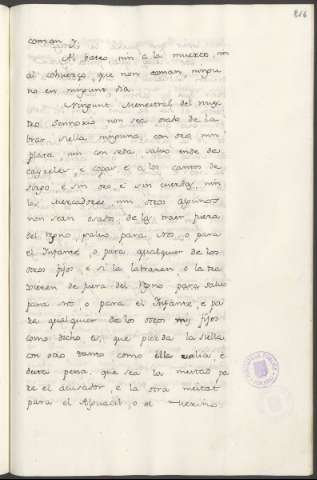 216
coman y.
Al paseo, nin a la muerte, nin
al cohuerzo, que non coman ningu
no en ningunt dia
Ningunt Menestral del nues
tro Sennorio non sea osado de la
brar siella ninguna, con oro, nin
plata, nin con seda salvo ende de
cayreles, e copas e a los cantos de
sirgo, e sin oro, e sin cuerda, nin
los Mercadores nin otros algunos
non sean osados de la traer fuera
del Regno, salvo para Nos, o para
el Infante, o para qualquier de los
otros fijos e si la labraren o la tra
dieren de fuera del Regno para salvo
para nos, o para el Infante, e pa
ra qualquier de los otros fijos
como dicho es, que pierda la siella
con otro tanto como ella valia, e
desta pena, que sea la meitad pa
ra el acusador, e la otra meitat
para el Alguacil, o el Merino